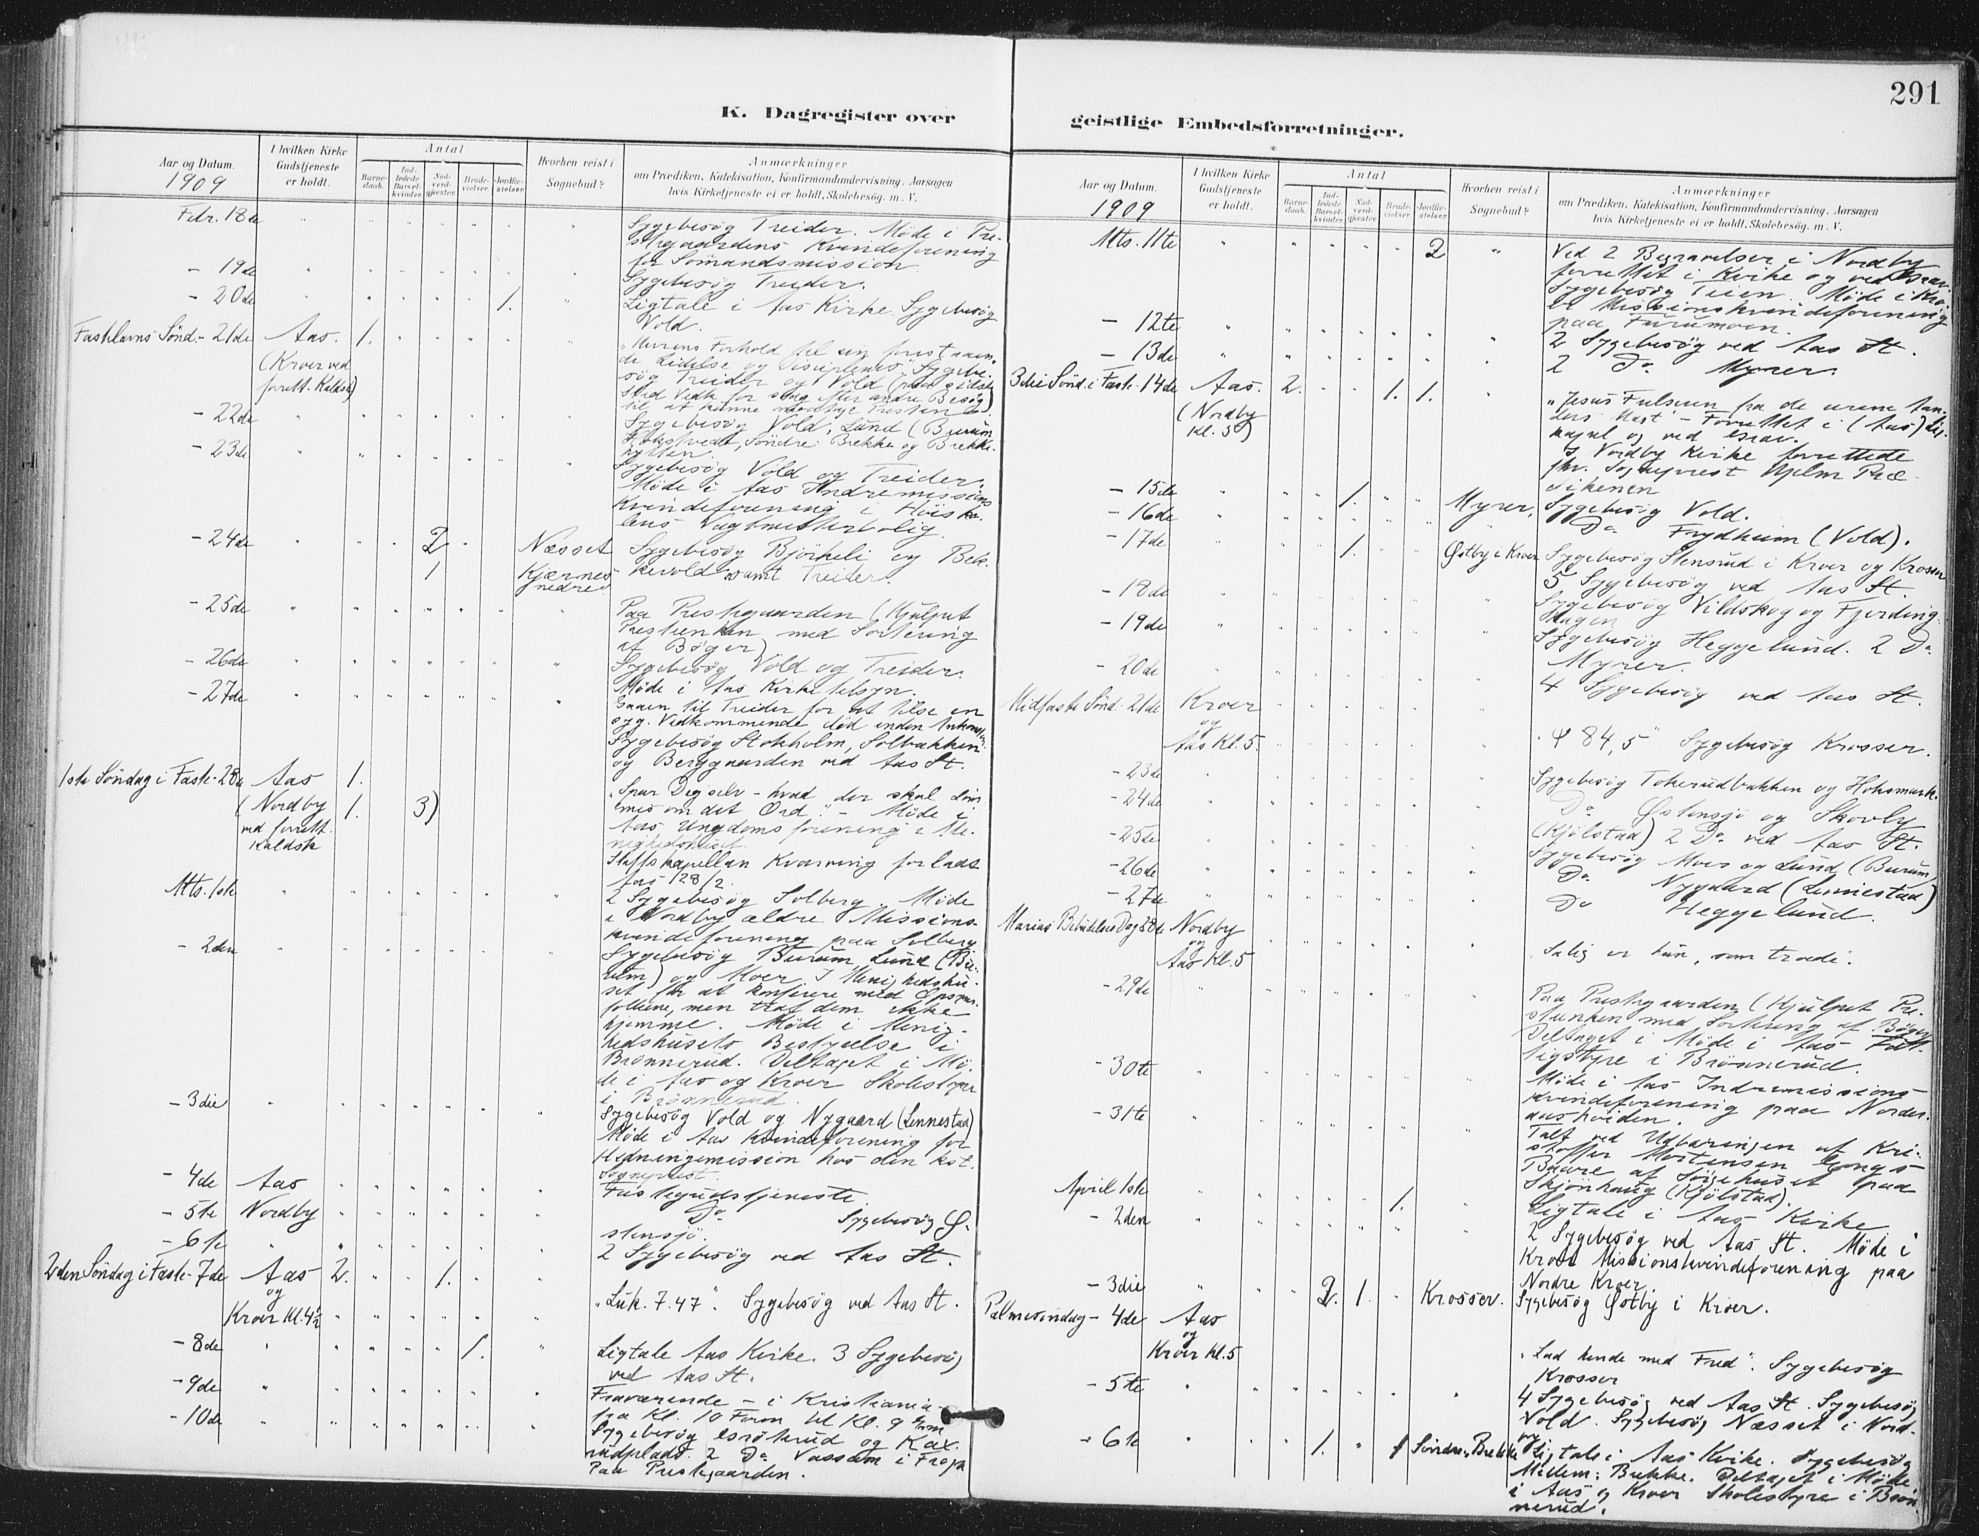 291
K. Dagregister over
geistlige Embedsforretninger.
Aar og Datum.
1909
I hvilken Kirke
Gudstjeneste
er holdt.
Antal
Barne-
daab.
Ind-
ledede
Barsel-
kvinder.
Nad-
verd-
gjester.
Brude-
vielser.
Jordfæ-
stelser.
Hvorhen reist i
Sognebud?
Anmærkninger
om Prædiken, Katekisation, Konfirmandundervisning. Aarsagen
hvis Kirketjeneste ei er holdt, Skolebesøg. m. V.
Febr. 18de Sygebesøg Treider. Møde i Pre-
stegaardens Kvindeforening
for Sømandsmission
- 19de Sygebesøg Treider.
- 20de 1. Ligtale i Aas Kirke. Sygebesøg
Vold.
Fastelavns Sønd. - 21de Aas. 1.
(Kroer ved
forrett. Kaldsk)
- 22de Sygebesøg Vold, Lund (Burum
- 23de Søndre Brekke og Brekke-
hytten.
Sygebesøg Vold og Treider.
Møde i Aas Indremissions
Kvindeforening i Høisko-
lens Vagtmesterbolig.
- 24de 2 Næsset Sygebesøg Bjørkeli og Bek-
1 Kjærnes nedre kevold samt Treider.
- 25de Paa Prestegaarden (Hjulpet
Prestenken med Sortering
af Bøger)
- 26de Sygebesøg Vold og Treider.
Møde i Aas Kirketilsyn.
- 27de Gaaen til Treider for at tilse en
syg. Vedkommende død inden Ankomsten.
Sygebesøg Stokholm, Solbakken
og Berggaarden ved Aas St.
1ste Søndag i Faste - 28de Aas 1. "Spar Deg selv - hvad der skal døm
(Nordby 1. 3) mes om det Ord." - Møde i
ved forrett. Aas Ungdomsforening i Me-
Kaldsk nighedshuset.
Stiftskapellan Kvarving forlader
Aas 28/2.
Mts. 1ste 2 Sygebesøg Solberg. Møde
i Nordby ældre Missions-
kvindeforening paa Solberg
- 2den Sygebesøg Burum, Lund (Bu-
rum) og Moer. I Menighedshu-
set for at konferere med Opsyns-
folkene, men traf dem ikke
hjemme. Møde i Menig-
hedshusets Bestyrelse i
Brønnerud. Deltaget i Mø-
de i Aas og Kroer Skolestyre
i Brønnerud.
- 3die Sygebesøg Vold og Nygaard (Lennestad)
Møde i Aas Kvindeforening for
Hedningemission hos den kst.
Sogneprest.
- 4de Aas Fastegudstjeneste
- 5te Nordby Do Sygebesøg Ø-
stensjø.
- 6te 2 Sygebesøg ved Aas St.
2den Søndag i Faste - 7de Aas 2. 1.
og
Kroer Kl. 4½ "Luk. 7.47". Sygebesøg ved Aas St.
- 8de 1. Ligtale Aas Kirke. 3 Sygebesøg
ved Aas St.
- 9de Fraværende - i Kristiania -
fra Kl. 10 Form. til Kl. 9 Em
- 10de Sygebesøg og Kax-
rudplads. 2 Do Vassum i Frogn
Paa Prestegaarden.
Aar og Datum.
1909
I hvilken Kirke
Gudstjeneste
er holdt.
Antal
Barne-
daab.
Ind-
ledede
Barsel-
kvinder.
Nad-
verd-
gjester.
Brude-
vielser.
Jordfæ-
stelser.
Hvorhen reist i
Sognebud?
Anmærkninger
om Prædiken, Katekisation, Konfirmandundervisning. Aarsagen
hvis Kirketjeneste ei er holdt, Skolebesøg. m. V.
Mts. 11te 2 Ved 2 Begravelser i Nordby
forrettet i Kirke og ved Grav.
Sygebesøg Teien. Møde i Kro-
er Missionskvindeforening
paa Furumoen.
- 12te 2 Sygebesøg ved Aas St.
- 13de 2 Do Myrer.
3die Sønd. i Faste - 14de Aas. 2. 1. 1. "Jesus Frelseren fra de urene Aan-
(Nordby ders Magt" - Forrettet i (Aas)
Kl. 5) kapel og ved Grav.
I Nordby Kirke forrettede
fhv. Sogneprest Uplm Præ-
dikenen
- 15de 1. Myrer. Sygebesøg Vold.
- 16de Do Frydheim (Vold).
- 17de 1. Østby i Kroer Sygebesøg Stensrud i Kroer og Krosser
- 18de 5 Sygebesøg ved Aas St.
- 19de Sygebesøg Vildskog og Fjerding-
hagen
Sygebesøg Heggelund. 2 Do
Myrer.
- 20de 4 Sygebesøg ved Aas St.
Midfaste Sønd. 21de Kroer
og
Aas Kl. 5. 84,5" Sygebesøg Krosser.
- 23de Sygebesøg Tokerudbakken og Holtsmark.
- 24de Do Østensjø og Skovly
- 25de (Kjølstad) 2 Do ved Aas St.
- 26de Sygebesøg Moer og Lund (Burum
Do Nygaard (Lennestad)
- 27de Do Heggelund.
Marias Bebudelses Dag 28de Nordby
og
Aas Kl. 5 Salig er hun, som troede.
- 29de Paa Prestegaarden (Hjulpet Pre-
stenken med Sortering af Bøger.
Deltaget i Møde i Aas Fat-
tigstyre i Brønnerud.
- 30te Møde i Aas Indremissions-
kvindeforening paa Nordre
- 31te Talt ved Udbæringen af Kri-
stoffer Mortensen
Baare af Sørgehuset paa
Skjønhaug (Kjølstad).
April 1ste 1. Ligtale i Aas Kirke
- 2den 2 Sygebesøg ved Aas St. Møde i
Kroer Missionskvindeforening paa
Nordre Kroer
- 3die 2. 1. Krosser. Sygebesøg Østby i Kroer.
Palmesøndag - 4de Aas
og
Kroer Kl. 5 "Lad hende med Fred". Sygebesøg
Krosser
- 5te 4 Sygebesøg ved Aas St. Sygebesøg
Vold. Sygebesøg Næsset i Nord-
by.
- 6te 1. 1 Søndre Brekke Ligtale i Aas Kirke. Sygebesøg
Mellem: Brekke. Deltaget i Møde
i Aas og Kroer Skolestyre i Brøn-
nerud.